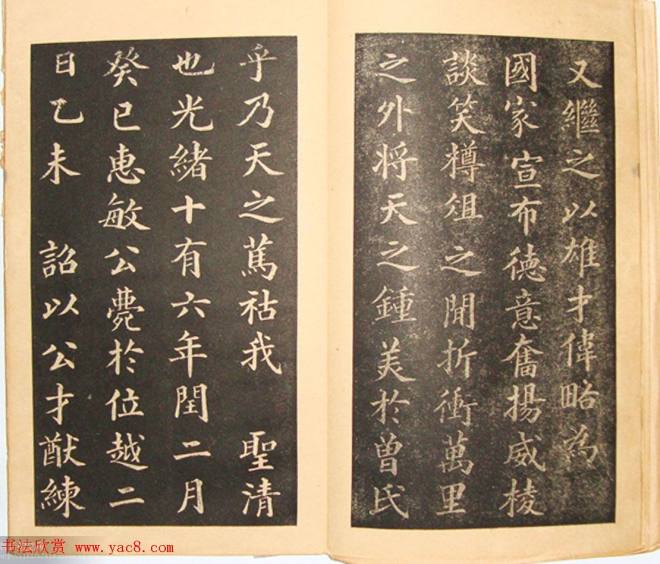 又繼之以雄才偉略為
國家宣布德意奮揚威棱
談笑樽俎之間折衝萬里
之外將天之鍾美於曾氏
乎乃天之篤祜我　聖清
也光緒十有六年閏二月
癸巳惠敏公薨於位越二
日乙未　詔以公才猷練
书法欣赏 www.yac8.com